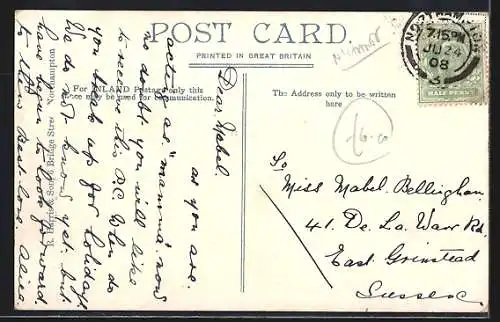 POST CARD.
PRINTED IN GREAT BRITAIN
For INLAND Postage only this
Space may be used for communication.
The Address only to be written
here
R. Harris & Son, 6 Bridge Street Northampton
NORTHAMPTON
7.15PM
JU 24
08
3
HALF PENNY
£6-00
Dear Mabel.
as you are
acting as "mamma" now
no doubt you will like
to receive this P.C. When do
you break up for holidays
We do not know yet. but
have begun to look forward
to them Best love Alice.
To
Miss Mabel Bellingham
41. De La Warr Rd.
East Grinstead
Sussex.